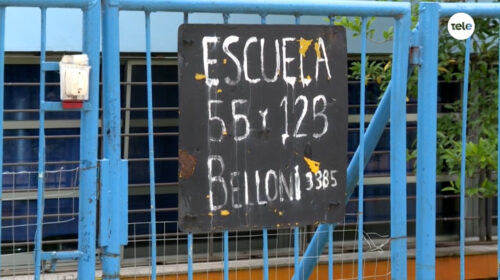 tele
ESCUELA
55 Y 123
BELLONI 3385